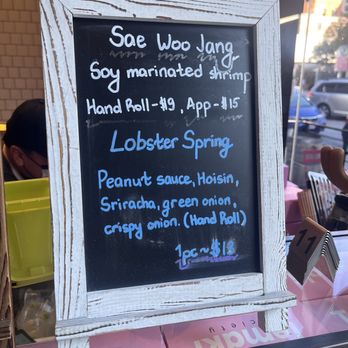 Sae Woo Jang
Soy marinated shrimp
Hand Roll-$9, App-$15
Lobster Spring
Peanut sauce, Hoisin,
Sriracha, green onion,
crispy onion. (Hand Roll)
11